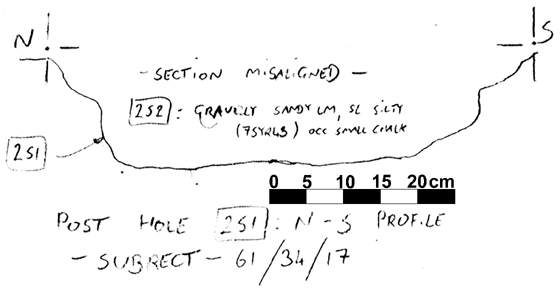 N
S
- SECTION MISALIGNED -
252 : GRAVELLY SANDY LM, SL SILTY
(75YR43) OCC SMALL CHALK
251
0 5 10 15 20cm
POST HOLE 251 : N - S PROFILE
- SUBRECT - 61/34/17